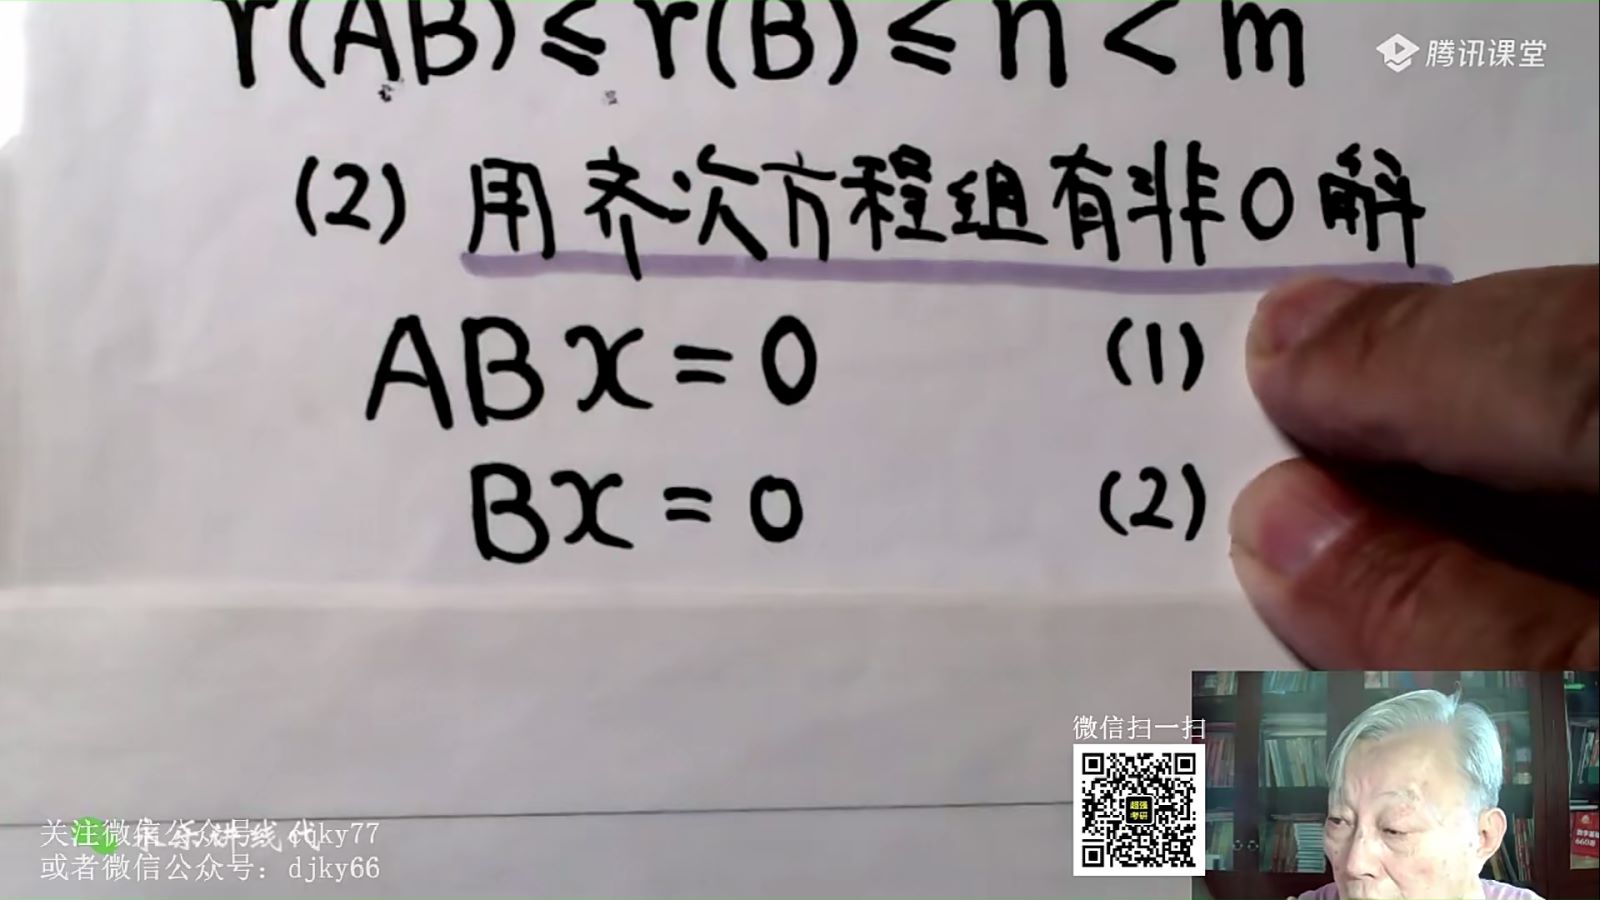 r(AB)≤r(B)≤n<m
腾讯课堂
(2) 用齐次方程组有非0解
ABx=0 (1)
Bx=0 (2)
微信扫一扫
超强
考研
关注微信公众号：djky77
或者微信公众号：djky66